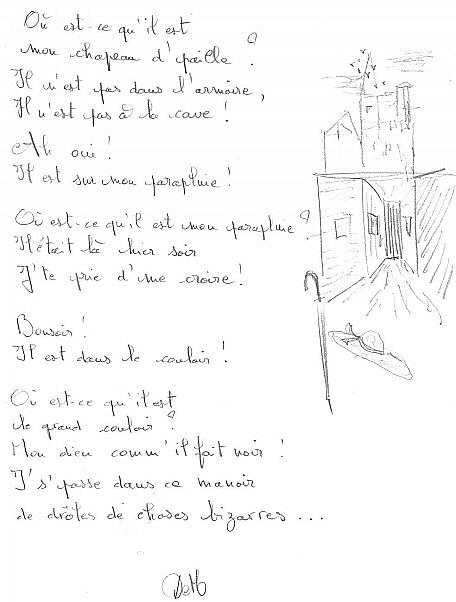 Où est-ce qu'il est
mon chapeau d'paille ?
Il n'est pas dans l'armoire,
Il n'est pas à la cave !
Ah oui !
Il est sur mon parapluie !
Où est-ce qu'il est mon parapluie ?
Il était là hier soir
J'te prie d'me croire !
Bonsoir !
Il est dans le couloir !
Où est-ce qu'il est
le grand couloir ?
Mon dieu comm' il fait noir !
I' s'passe dans ce manoir
de drôles de choses bizarres ...